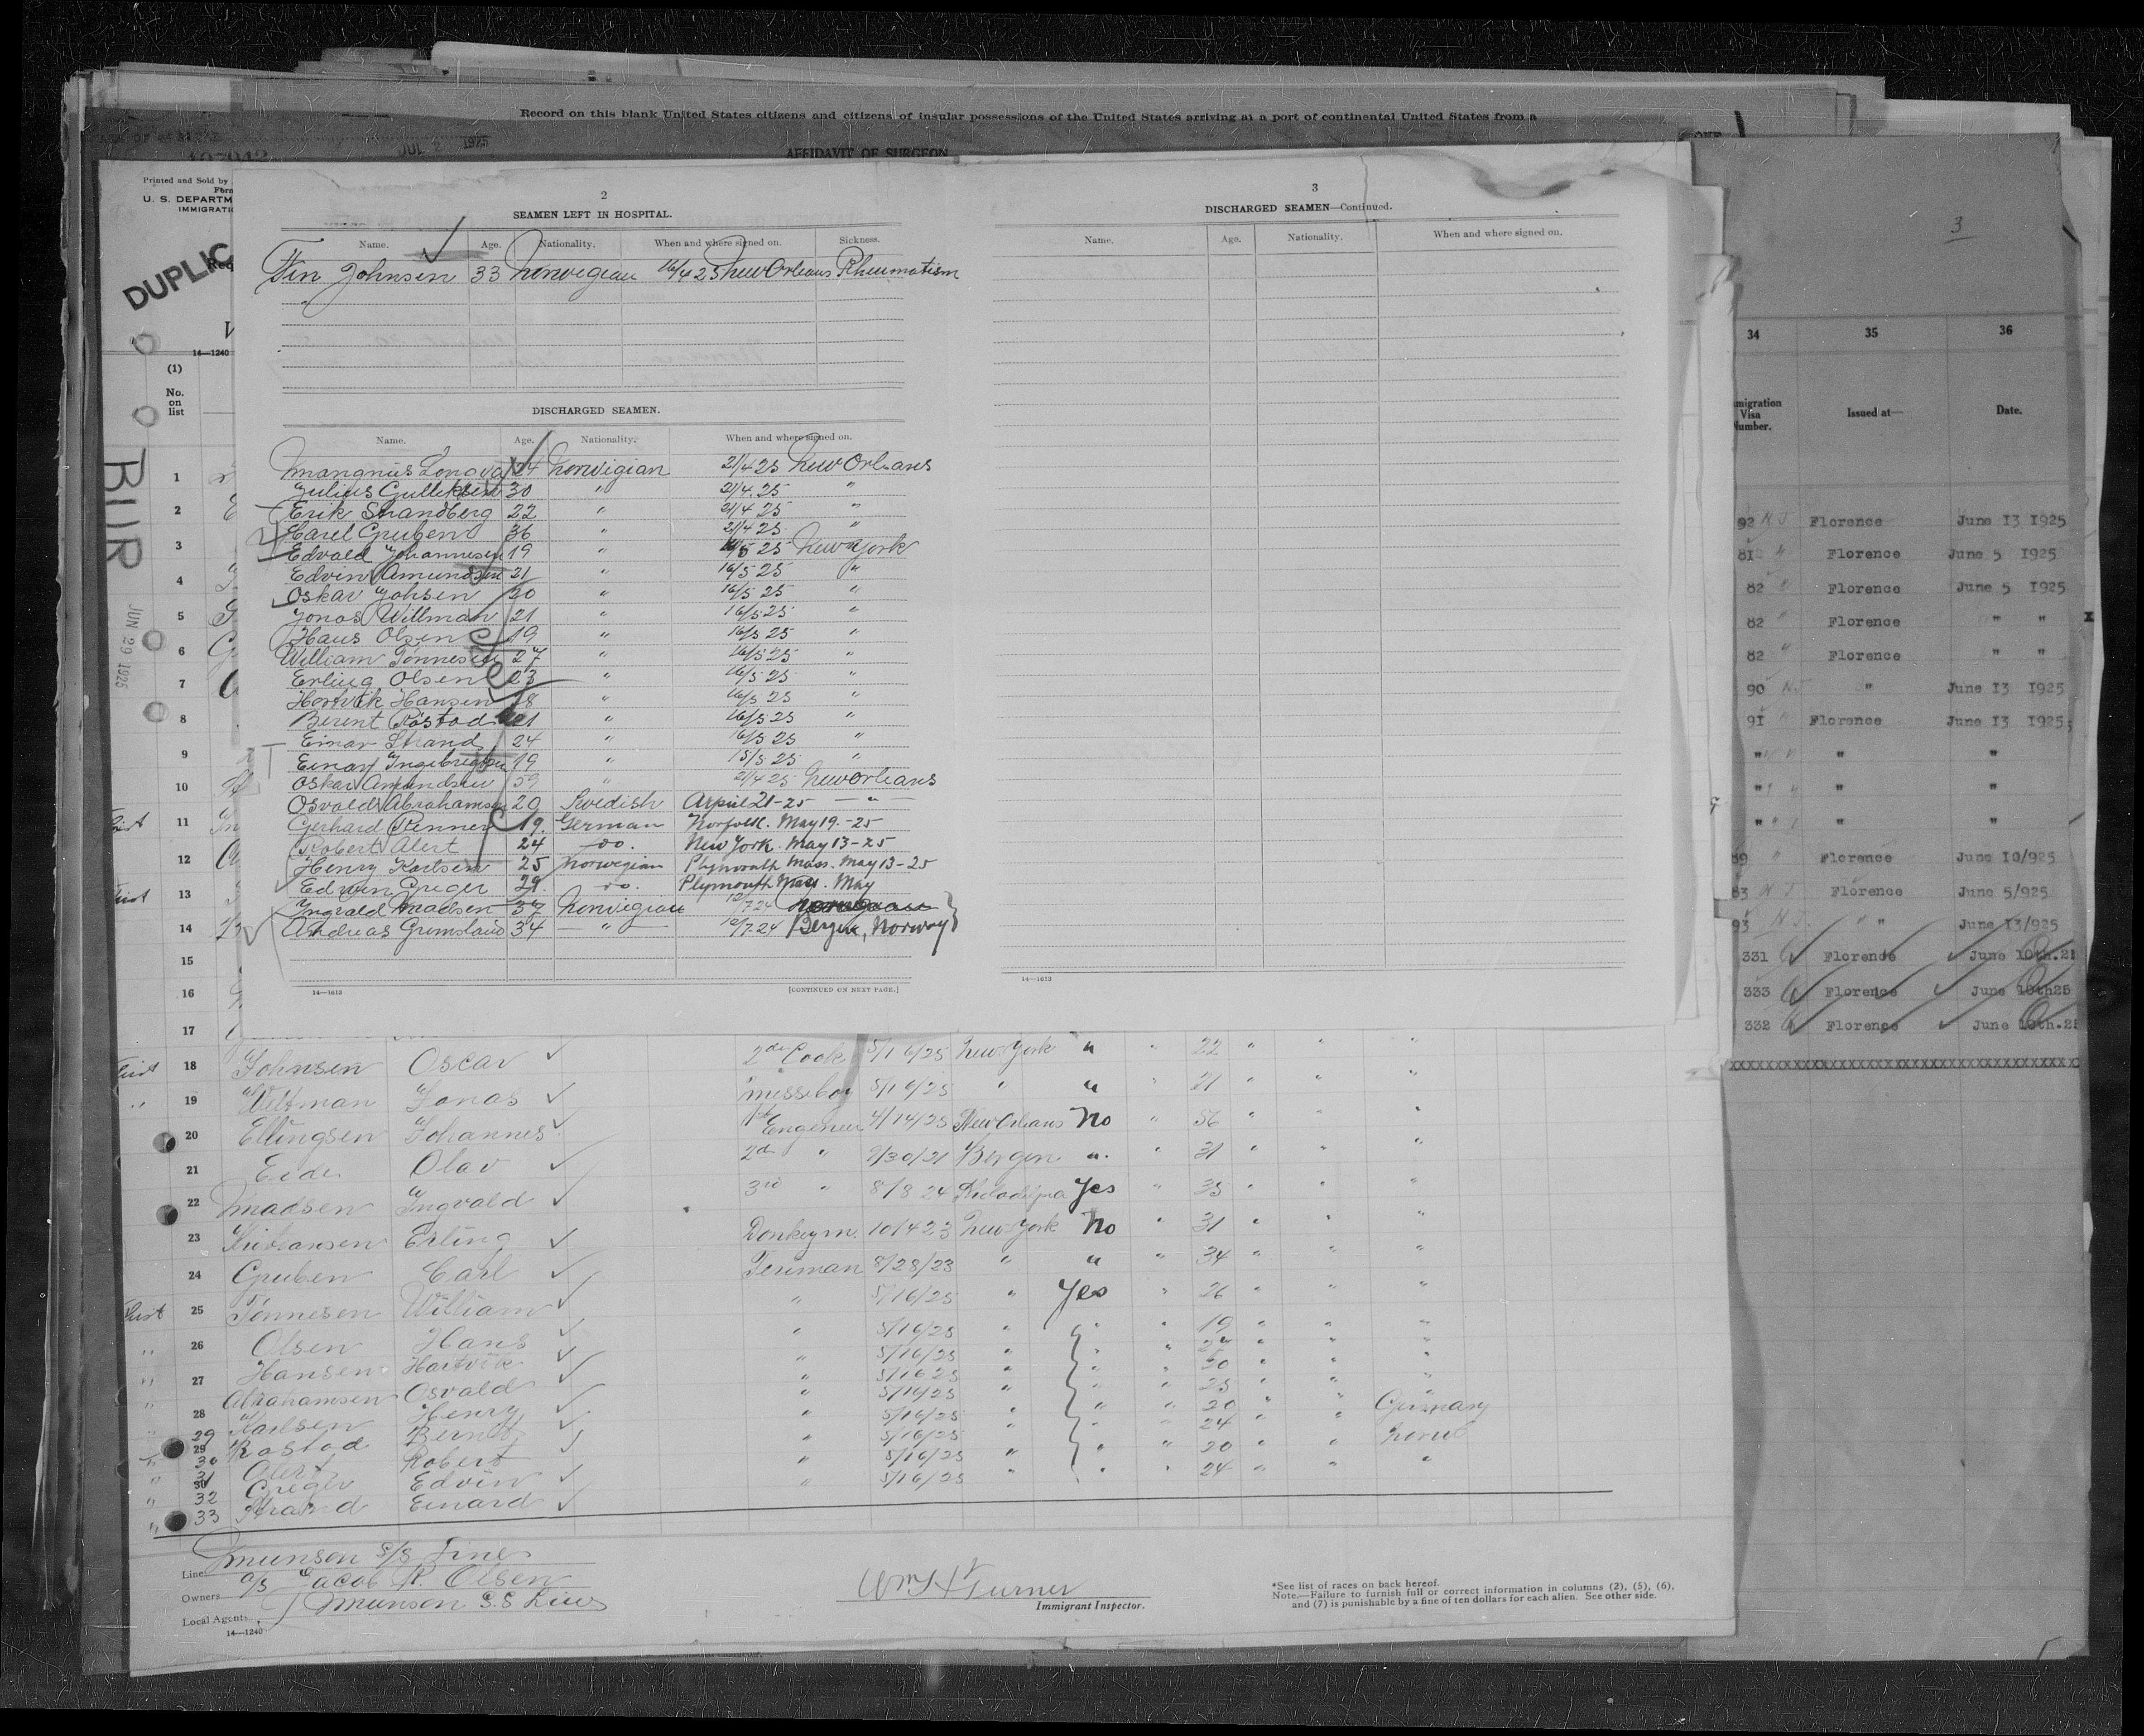 Record on this blank United States citizens and citizens of insular possessions of the United States arriving at a port of continental United States from a
JUL 2 1925
AFFIDAVIT OF SURGEON
Printed and Sold by
Form
U. S. DEPARTM
IMMIGRATIO
DUPLIC
Req
14—1240
(1)
No.
on
list
BUR
JUN 29 1925
2
SEAMEN LEFT IN HOSPITAL.
Name. Age. Nationality. When and where signed on. Sickness.
Fin Johnsen 33 Norwegian 16/4 25 New Orleans Rheumatism
DISCHARGED SEAMEN.
Name. Age. Nationality. When and where signed on.
Mangnus Longva 24 Norwigian 21/4 25 New Orleans
Julius Gulleksen 30 " 21/4. 25 "
Erik Strandberg 22 " 21/4 25 "
Karel Gruben 36 " 21/4 25 "
Edvald Johannesen 19 " 16/5 25 New York
Edvin Amundsen 21 " 16/5 25 "
Oskar Johsen 20 " 16/5 25 "
Jonas Willman 21 " 16/5 25 "
Hans Olsen 19 " 16/5 25 "
William Tönnesen 27 " 16/5 25 "
Erling Olsen 23 " 16/5 25 "
Hartvik Hansen 28 " 16/5 25 "
Berent Röstad 21 " 16/5 25 "
Einar Strand 24 " 16/5 25 "
Einar Ingebrigtsen 19 " 15/5 25 "
Oskar Amundsen 59 " 21/4 25 New Orleans
Osvald Abrahamsen 20 Swedish April 21-25 — " —
Gerhard Renner 19. German Norfolk. May 19.-25
Robert Alert 24 —do. New York. May 13-25
Henry Karlsen 25 Norwegian Plymouth Mass. May 13-25
Edwin Greger 29. —do. Plymouth Mass. May
Ingvald Madsen 37 Norwigian 12/7 24
Andreas Grimstad 34 — " — 12/7. 24 Bergen, Norway
14—1613 [CONTINUED ON NEXT PAGE.]
3
DISCHARGED SEAMEN—Continued.
Name. Age. Nationality. When and where signed on.
14—1613
3
34 35 36
migration
Visa
Number. Issued at— Date.
92 N J Florence June I3 I925
8I2 " Florence June 5 I925
82 " Florence June 5 I925
82 " Florence " "
82 " Florence " "
90 N.J " June I3 I925
9I " Florence June I3 I925
" " "
" " "
" " "
89 " Florence June I0/925
83 N J Florence June 5/925
93 N.J. " " June I3/925
331 Florence June 10th.25
333 Florence June 10th25
332 Florence June 10th.25
1
2
3
4
5
6
7
8
9
10
11
12
13
14
15
16
17
First 18 Johnsen Oscar 2nd Cook 5/16/25 New York " " 22 " " "
" 19 Weltman Jonas messeboy 5/16/25 " " " 21 " " "
20 Ellingsen Johannes 1st Engeneer 4/14/25 New Orleans No " 56 " " "
21 Eide Olav 2nd " 9/30/21 Bergen " " 31 " " "
22 Madsen Ingvald 3rd " 8/8 24 Philadelpia Yes " 35 " " "
23 Kristiansen Erling Donkeym. 10/4 23 New York No " 31 " " "
24 Gruben Carl Fireman 8/28/23 " " " 34 " " "
First 25 Tönnesen William " 5/16/25 " Yes " 26 " " "
" 26 Olsen Hans " 5/16/25 " " " 19 " " "
" 27 Hansen Hartvik " 5/16/25 "
" 28 Abrahamsen Osvald " 5/16 25 " " " 20 " " "
29 Karlsen Henry " 5/16/25 " " " 25 " " "
30 Rostad Bernt " 5/16/25 " " " 20 " "
31 Alert Robert " 5/16/25 " " " 24 " " Germany
32 Greger Edvin " 5/16/25 " " " 20 " "
33 Strand Einard " 5/16/25 " " " 24 " " "
Line Munson S/S Line
Owners a/s Jacob R. Olsen
Local Agents Munson S.S Line
14—1240
Wm H Turner
Immigrant Inspector.
*See list of races on back hereof.
Note.—Failure to furnish full or correct information in columns (2), (5), (6),
and (7) is punishable by a fine of ten dollars for each alien. See other side.